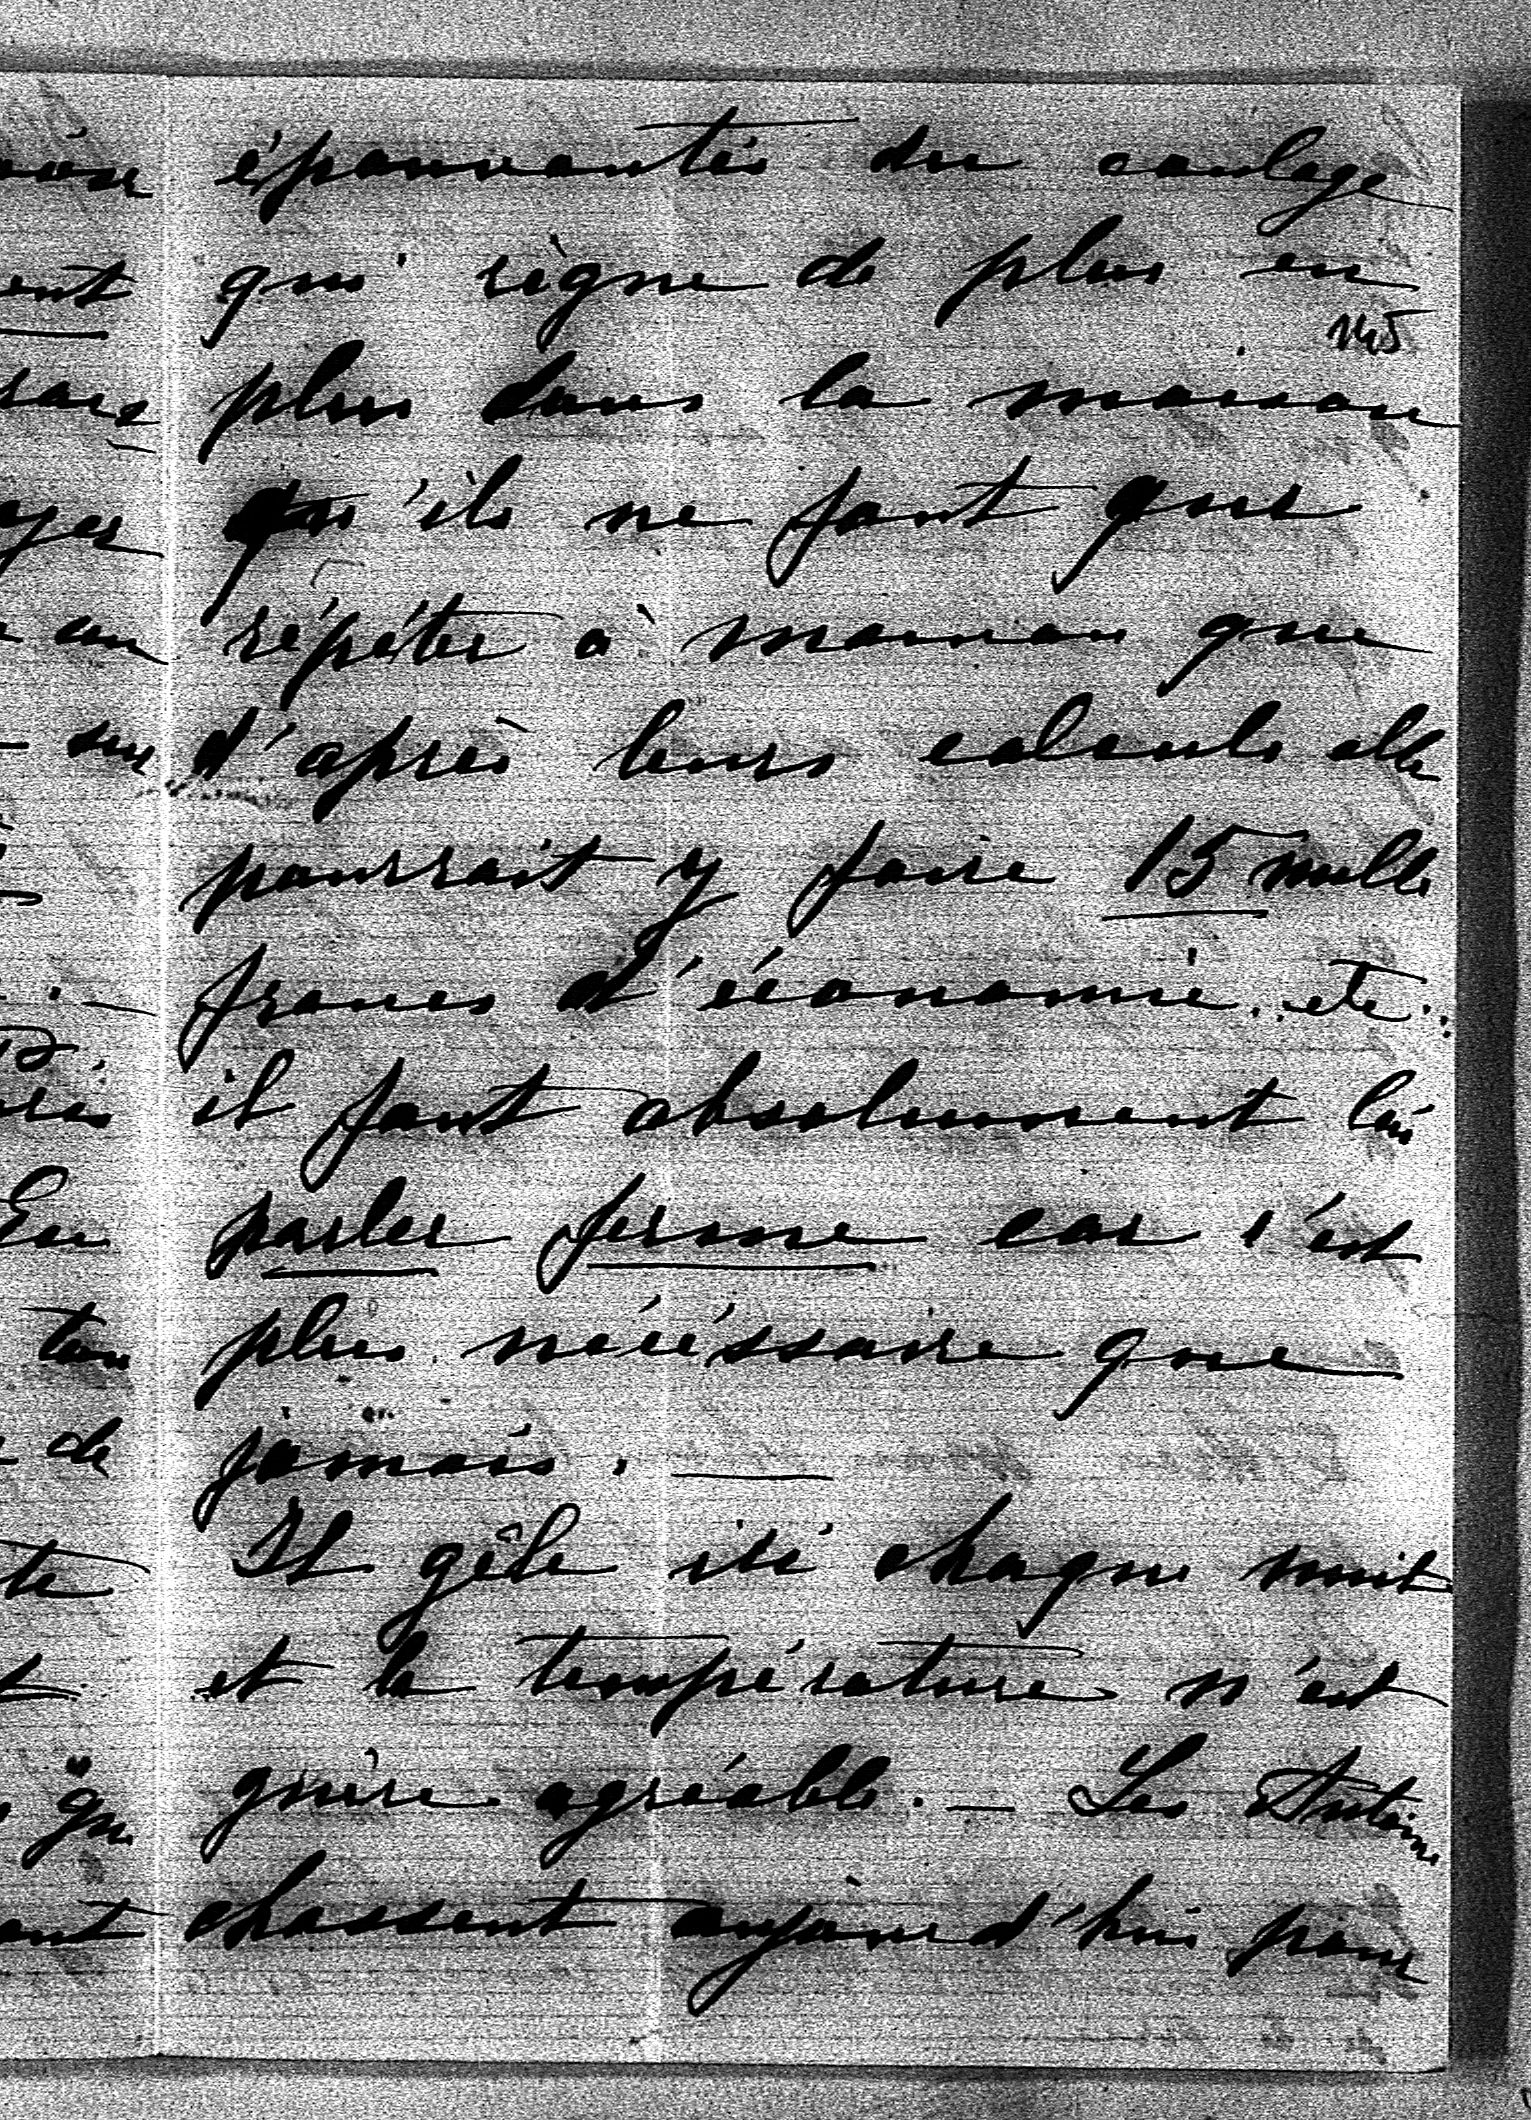 épouvantés du coulage
qui règne de plus en
145
plus dans la maison
qu'ils ne font que
répéter à maman que
d'après leurs calculs elle
pourrait y faire 15 mille
francs d'économie. etc..
il faut absolument lui
parler ferme car c'est
plus nécéssaire que
jamais. —
Il gêle ici chaque nuit
et la température n'est
guère agréable. — Les Antoine
chassent aujourd'hui pour